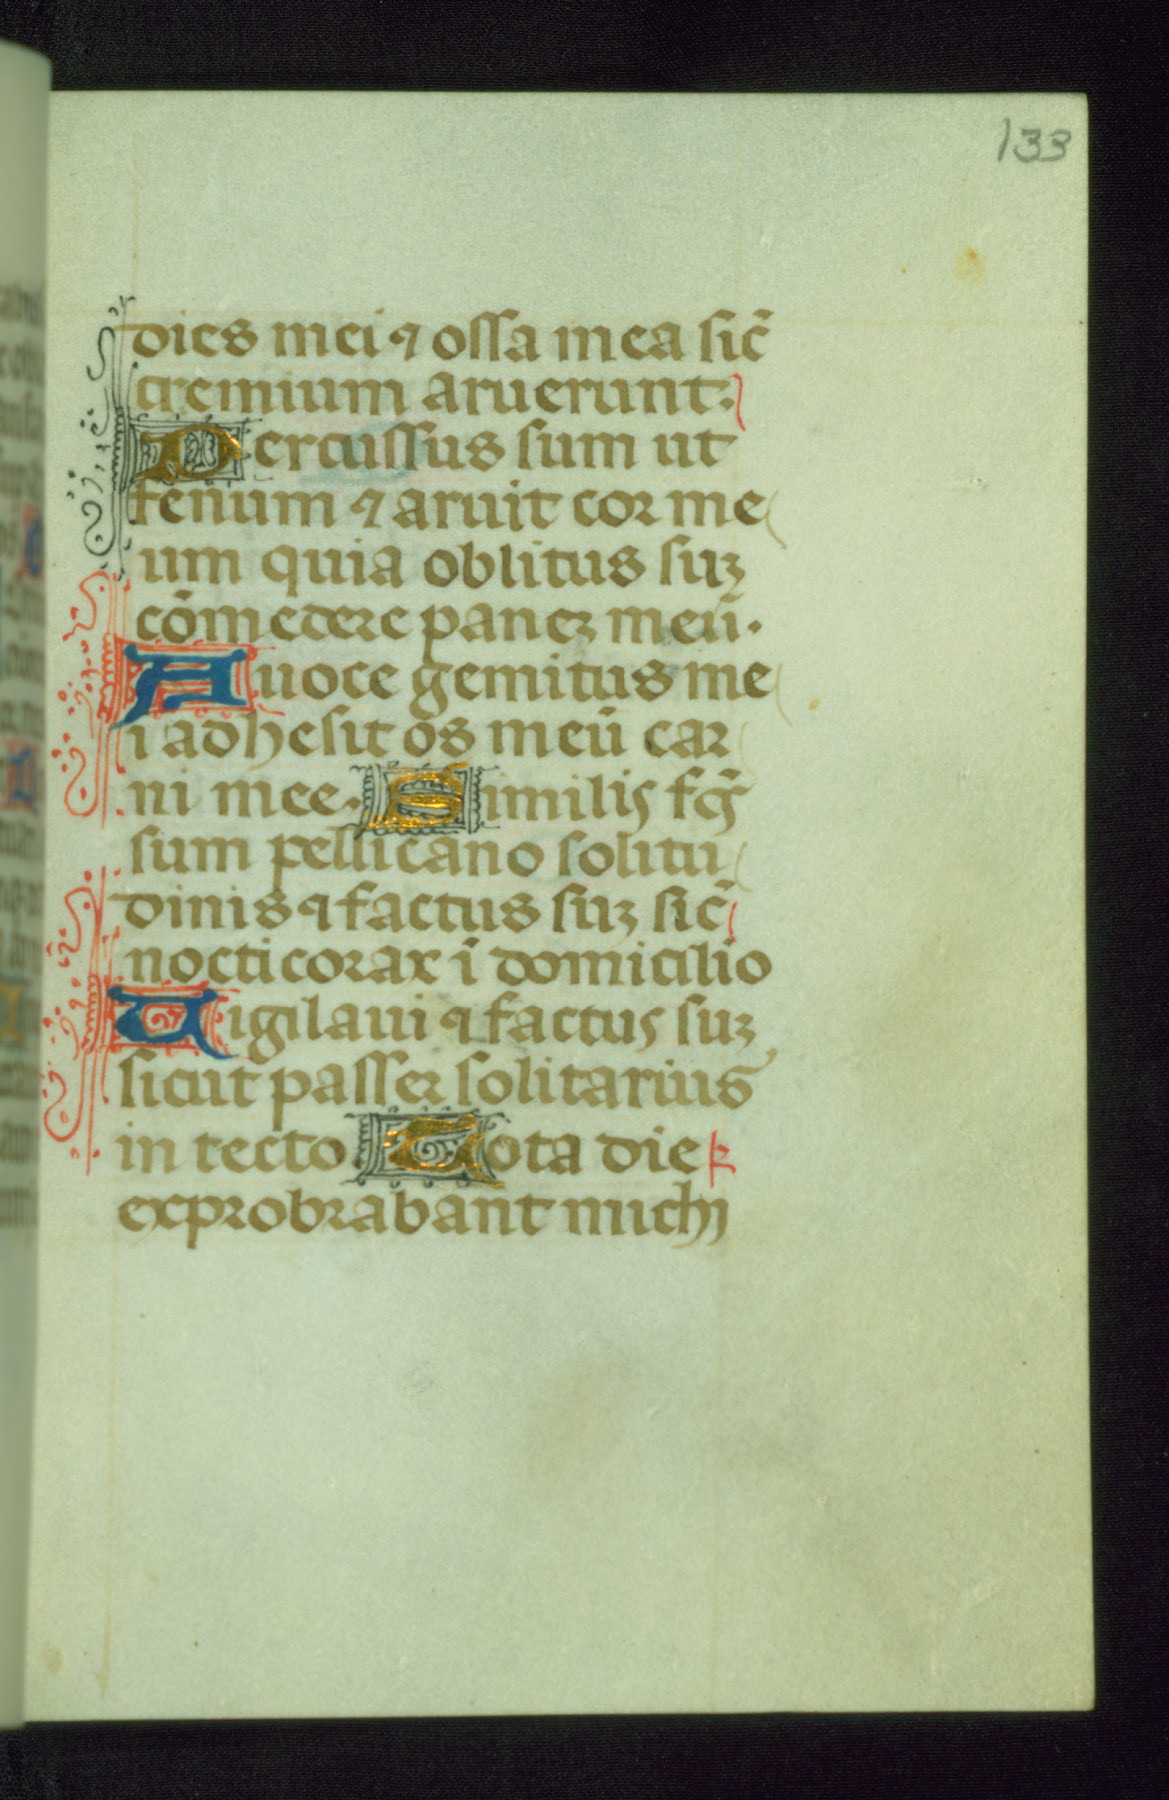 133
dies mei ⁊ ossa mea sic̄
cremium aruerunt.
Percussus sum ut
fenum ⁊ aruit cor me
um quia oblitus suꝫ
cōmedere paneꝫ meū.
A uoce gemitus me
i adhesit os meū car
ni mee. Similis fc̄s
sum pellicano solitu
dinis ⁊ factus suꝫ sic̄
nocticorax ī domicilio
Uigilaui ⁊ factus suꝫ
sicut passer solitarius
in tecto. Tota die
exprobrabant michi